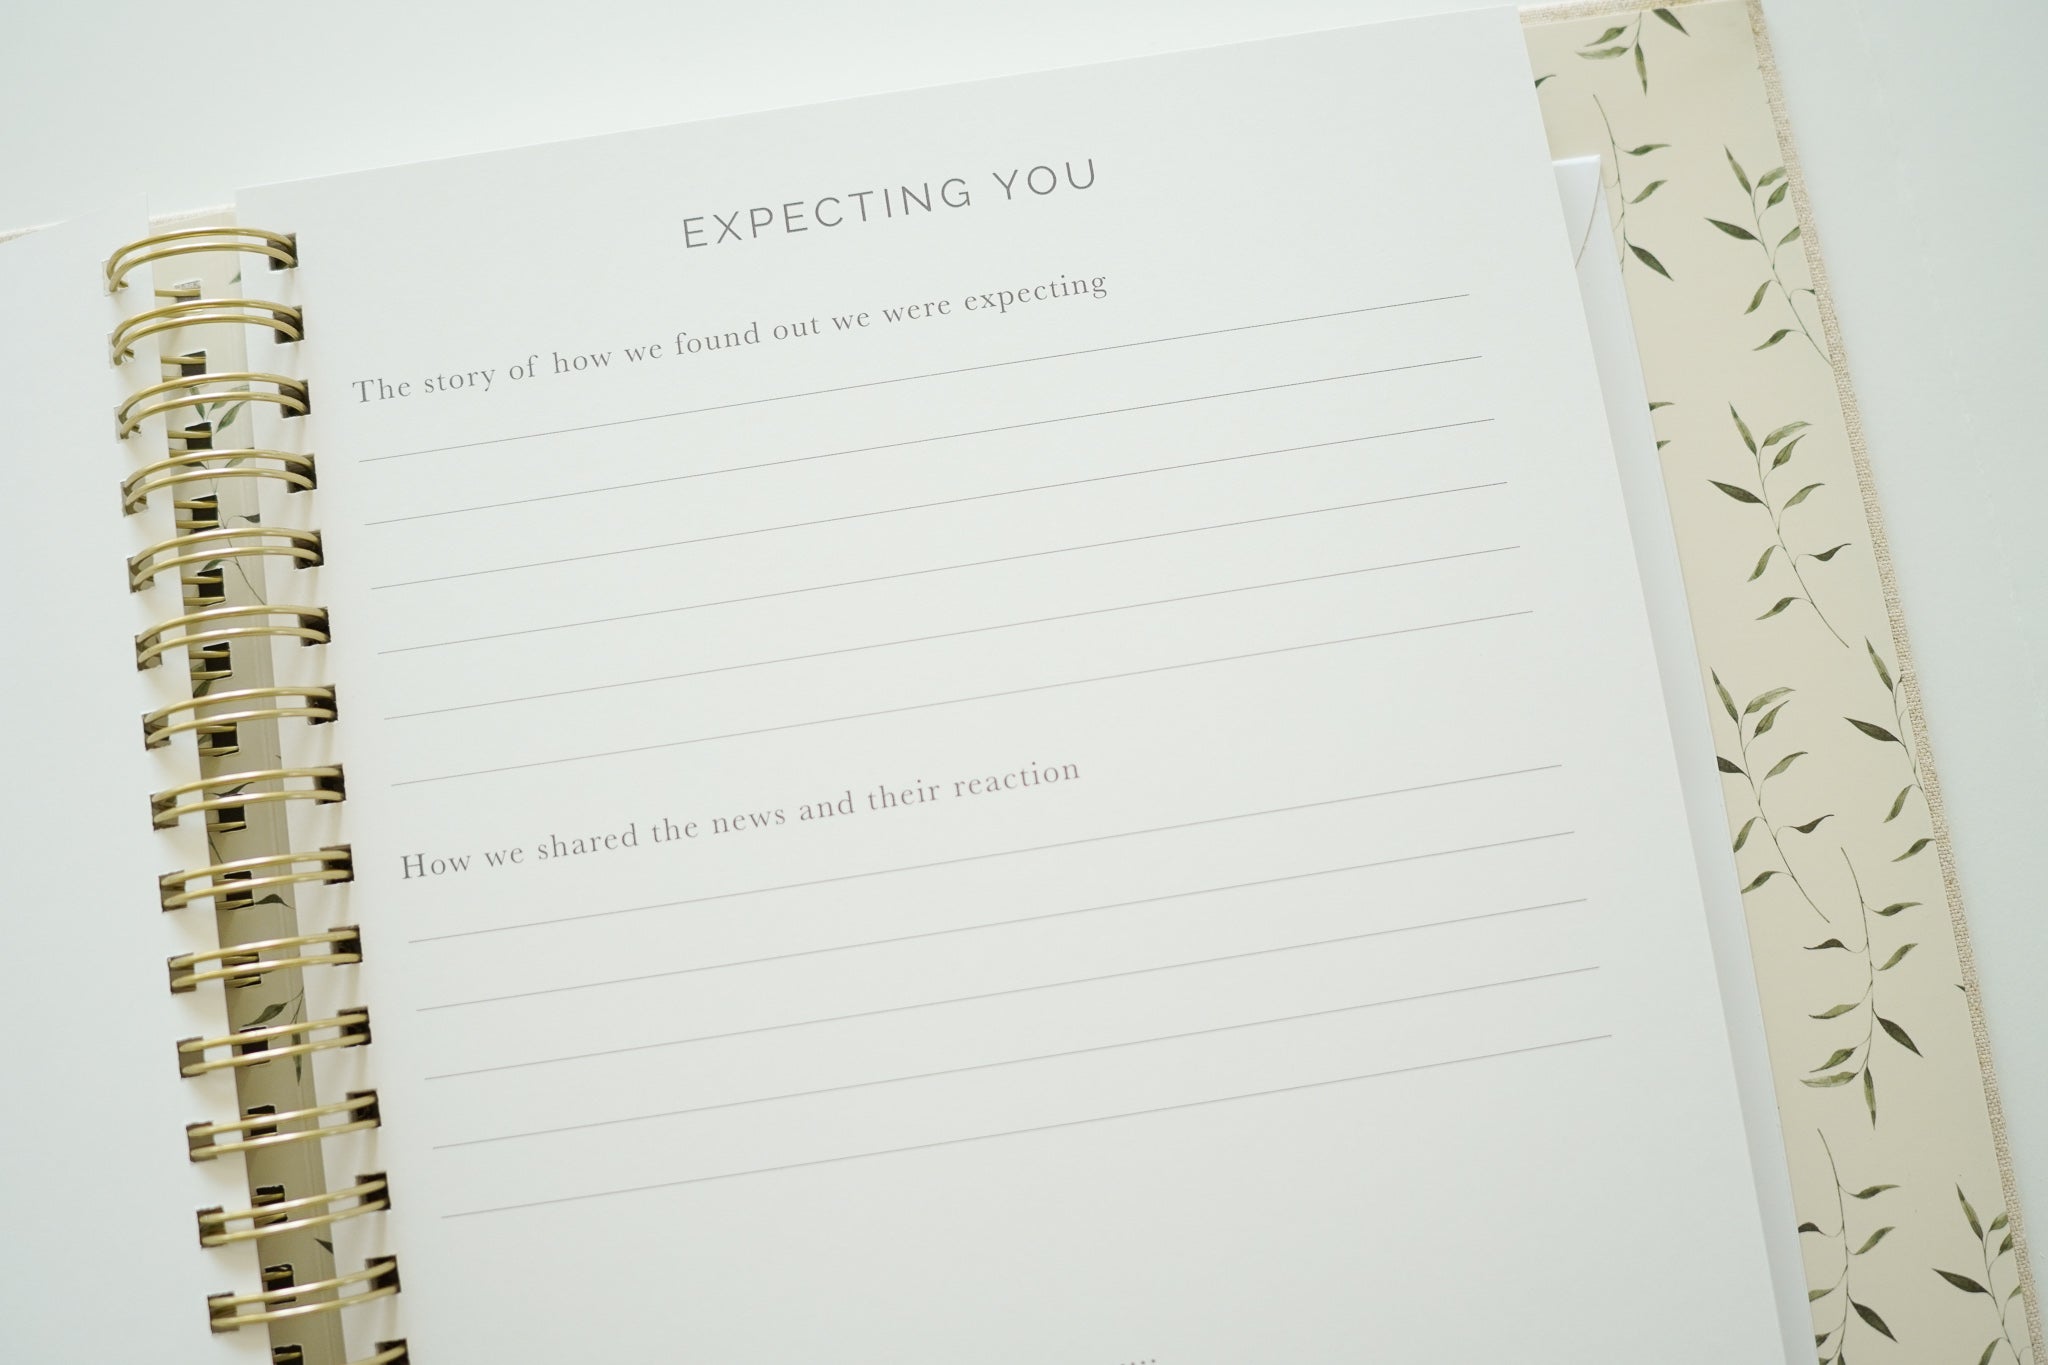 EXPECTING YOU
The story of how we found out we were expecting
How we shared the news and their reaction